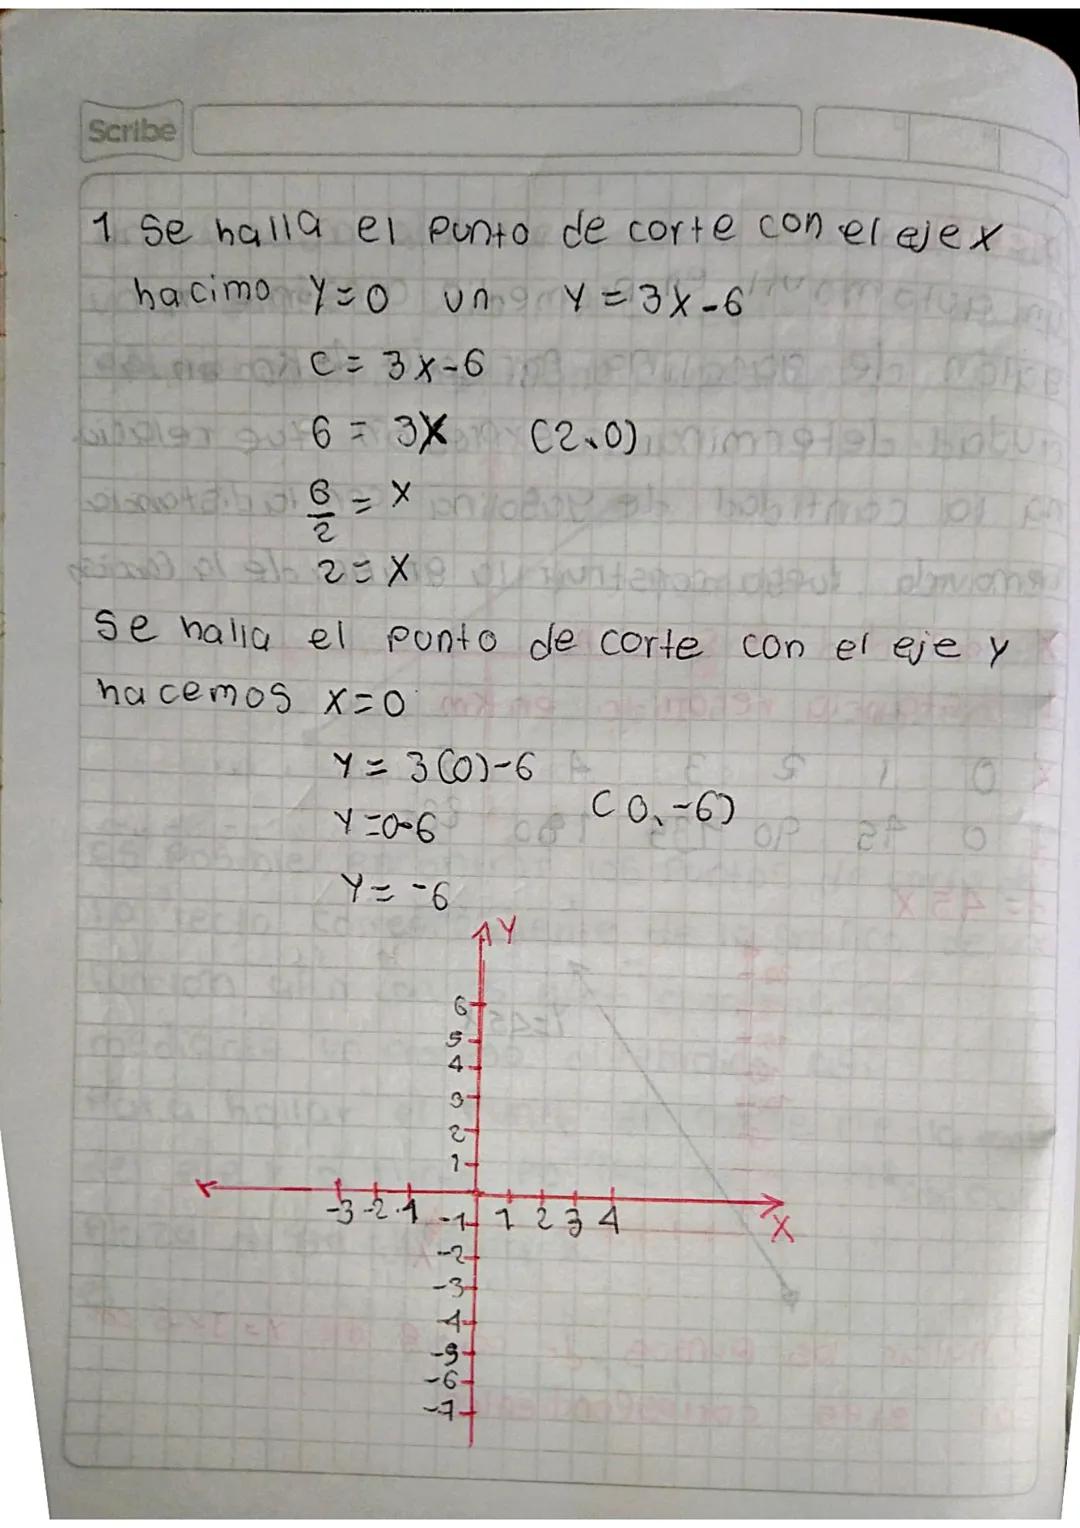 Scribe
1 Se halla el punto de corte con el eje x
hacimo y=0 un y=3x-6
C=3x-6
6=3x (2,0)
6/2=x
2=x
Se halla el punto de corte con el eje y
hacemos x=0
y=3(0)-6
y=0-6 (0,-6)
y=-6
Y
6
5
4
3
2
1
-3 -2 -1 -1 1 2 3 4 X
-2
-3
-4
-5
-6
-7